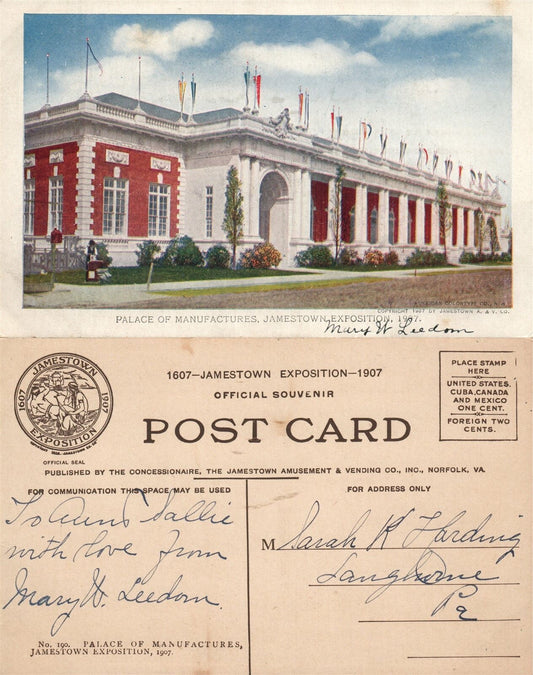 AMERICAN COLORTYPE CO., N.Y.
COPYRIGHT 1907 BY JAMESTOWN A. & V. CO.
PALACE OF MANUFACTURES, JAMESTOWN EXPOSITION, 1907.
Mary W Leedom
JAMESTOWN
1607
1907
EXPOSITION
OFFICIAL SEAL
1607—JAMESTOWN EXPOSITION—1907
OFFICIAL SOUVENIR
POST CARD
PLACE STAMP
HERE
UNITED STATES.
CUBA, CANADA
AND MEXICO
ONE CENT.
FOREIGN TWO
CENTS.
PUBLISHED BY THE CONCESSIONAIRE, THE JAMESTOWN AMUSEMENT & VENDING CO., INC., NORFOLK, VA.
FOR COMMUNICATION THIS SPACE MAY BE USED
FOR ADDRESS ONLY
To Aunt Sallie
with love from
Mary W. Leedom.
M Sarah K Harding
Langhorne
Pa
No. 190. PALACE OF MANUFACTURES,
JAMESTOWN EXPOSITION, 1907.